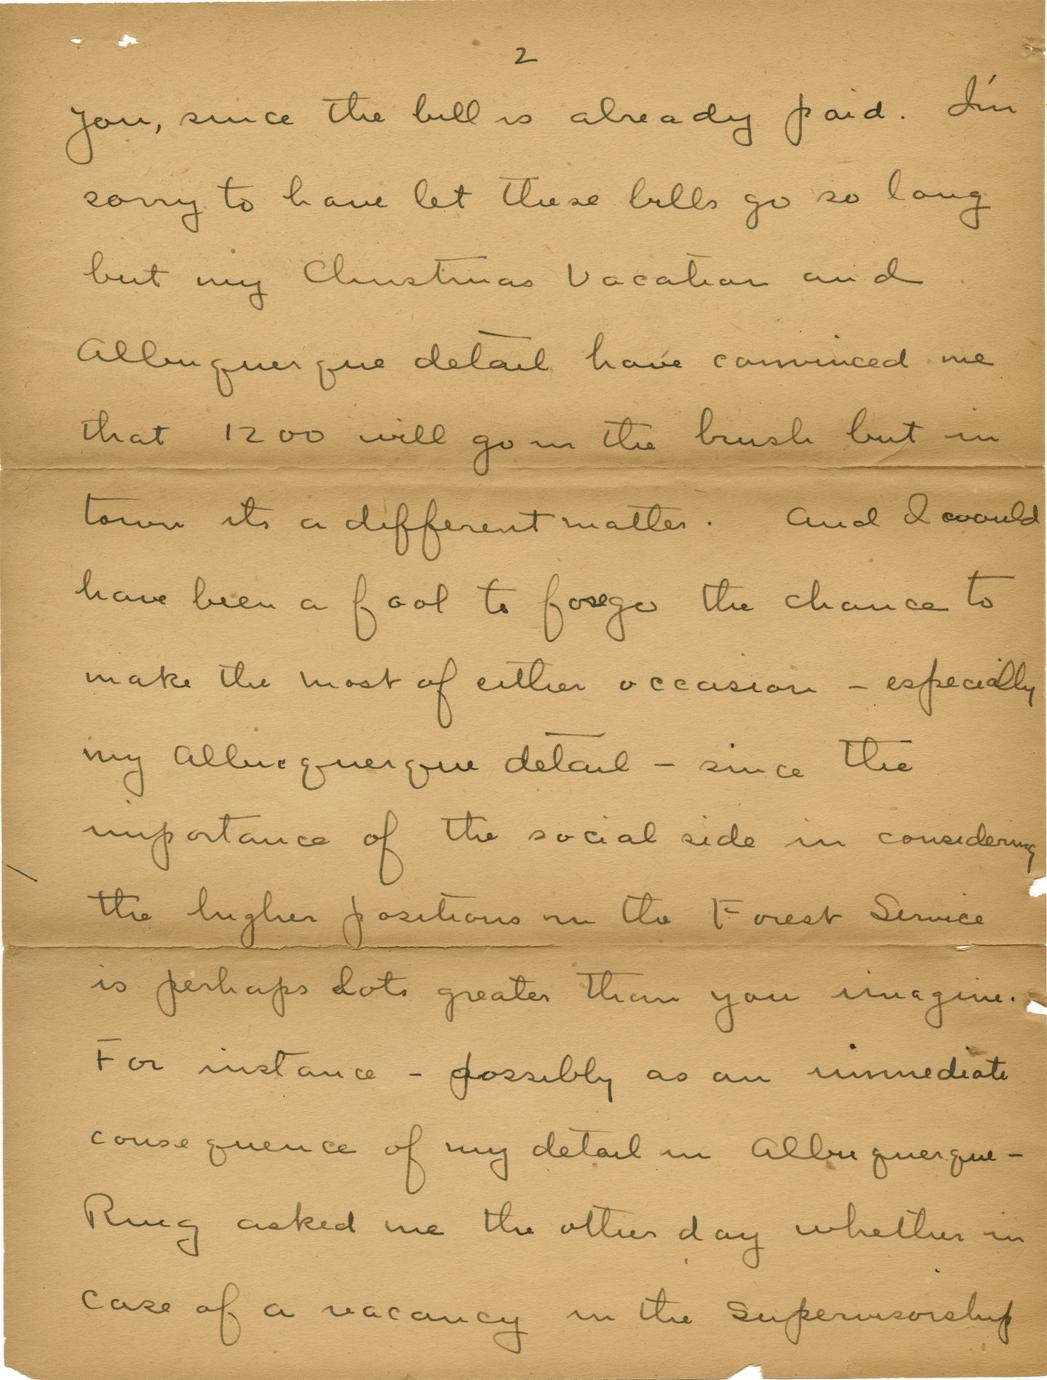 2
you, since the bill is already paid. I'm
sorry to have let these bills go so long
but my Christmas Vacation and
Albuquerque detail have convinced me
that 1200 will go in the brush but in
town its a different matter. And I would
have been a fool to forego the chance to
make the most of either occasion – especially
my Albucquerque detail – since the
importance of the social side in considering
the higher positions in the Forest Service
is perhaps lots greater than you imagine.
For instance – possibly as an immediate
consequence of my detail in Albuquerque –
Ring asked me the other day whether in
case of a vacancy in the Supervisorship